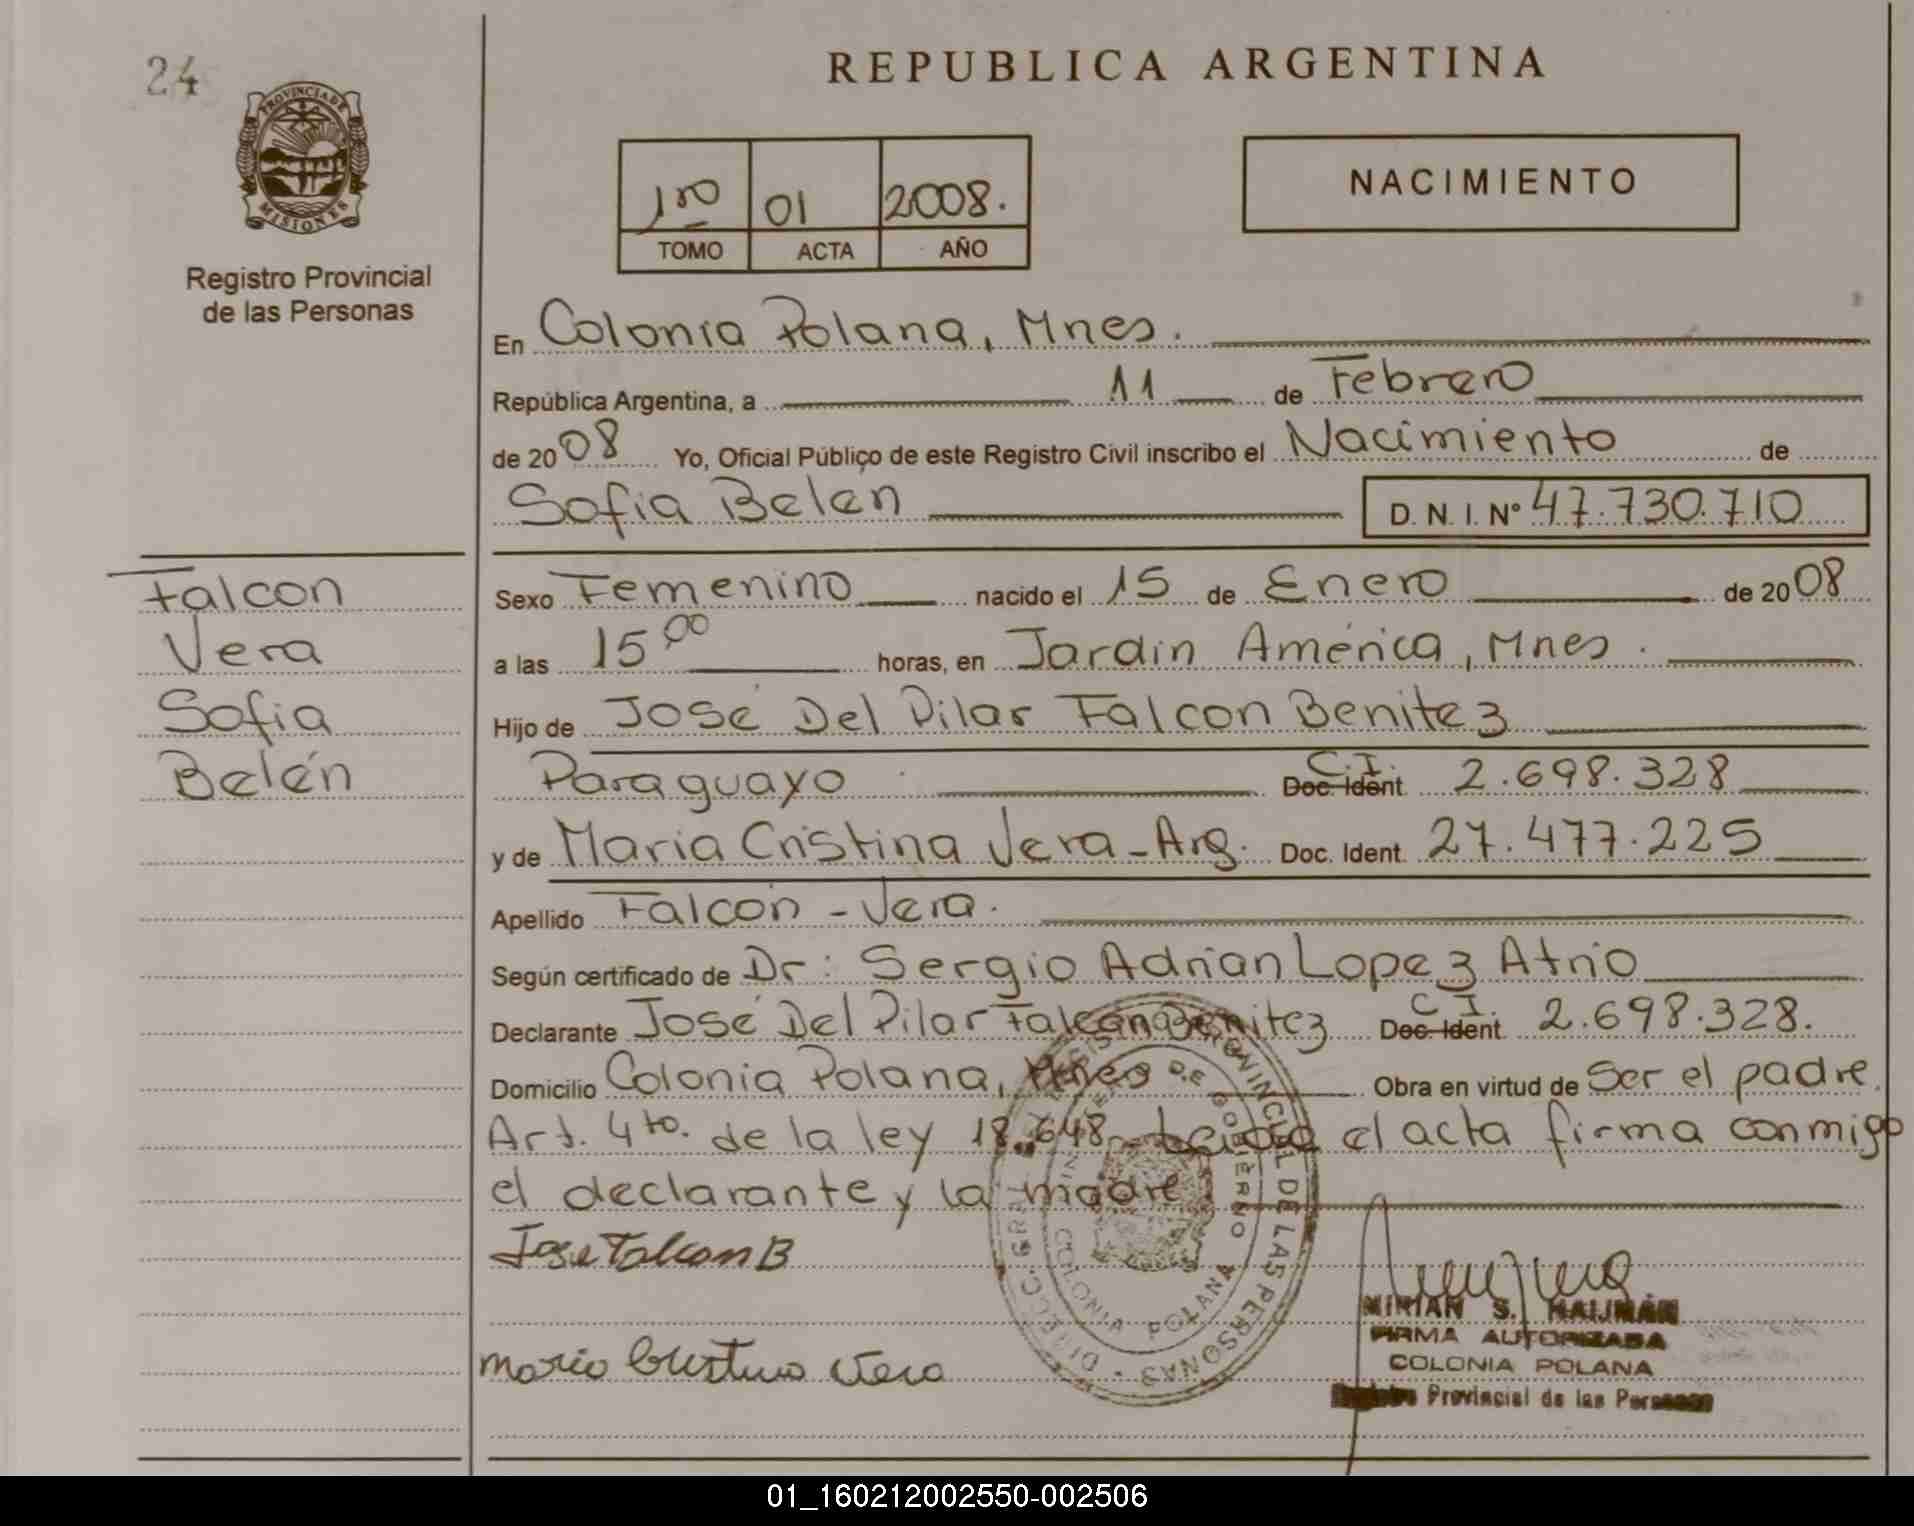 24
PROVINCIA DE
MISIONES
Registro Provincial
de las Personas
REPUBLICA ARGENTINA
1ro 01 2008.
TOMO ACTA AÑO
NACIMIENTO
En Colonia Polana, Mnes.
República Argentina, a 11 de Febrero
de 2008 Yo, Oficial Público de este Registro Civil inscribo el Nacimiento de
Sofia Belén D. N. I. Nº 47.730.710
Falcon
Vera
Sofia
Belén
Sexo Femenino nacido el 15 de Enero de 2008
a las 15 00 horas, en Jardin América, Mnes.
Hijo de José Del Pilar Falcon Benitez
Paraguayo C.I. Doc. Ident. 2.698.328
y de Maria Cristina Vera - Arg. Doc. Ident. 27.477.225
Apellido Falcón - Vera.
Según certificado de Dr: Sergio Adrian Lopez Atrio
Declarante José Del Pilar Falcon Benitez C.I. Doc. Ident. 2.698.328.
Domicilio Colonia Polana, Mnes Obra en virtud de Ser el padre.
Art. 4to. de la ley 18.648 Leida el acta firma conmigo
el declarante y la madre.
Jose Falcon B
Maria Cristina Vera
PROVINCIAL DE LAS PERSONAS
DE GOBIERNO
COLONIA POLANA
MIRIAN S. NAUMÁN
FIRMA AUTORIZADA
COLONIA POLANA
Registro Provincial de las Personas
01_160212002550-002506